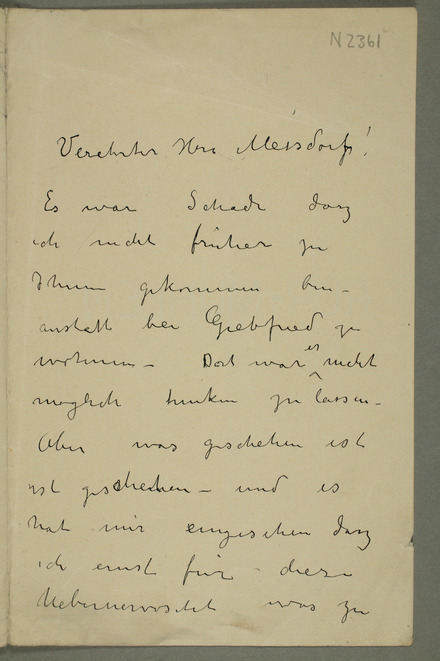 N2361
Verehrter Herr Meisdorf!
Es war Schade daß
ich nicht früher zu
Ihnen gekommen bin –
anstatt bei Giebfried zu
wohnen – Dort war es nicht
möglich trinken zu lassen –
Aber was geschehen ist
ist geschehen – und es
hat mir eingesehen daß
ich ernst für diese
Uebernervosität was zu